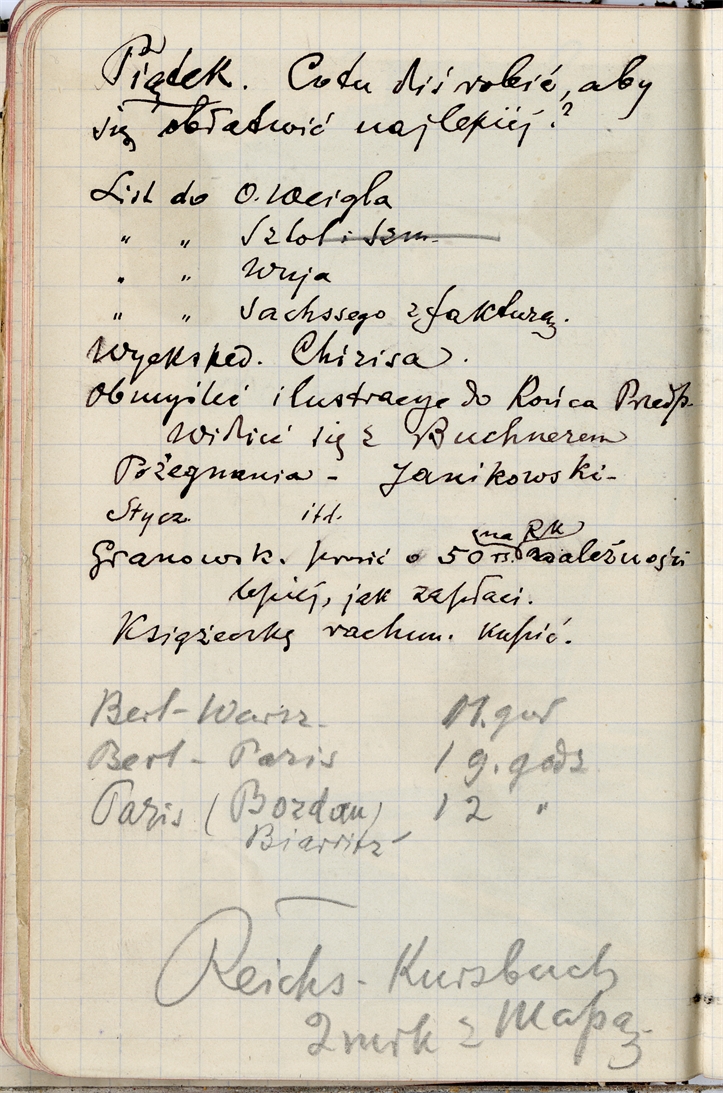 Piątek. Co tu dziś robić, aby
się obłatwić najlepiej?
List do O. Weigla
" " Szlol i Szm.
" " Wuja
" " Sachssego z fakturą.
Wyeksped. Chirisa.
Obmyślić ilustracye do końca Przedp.
Widzieć się z Buchnerem
Pożegnania - Janikowski -
Stycz. itd.
Granowsk. prosić o 50 rs. na RK należności
lepiej, jak zapłaci.
Książeczkę rachun. kupić.
Berl - Warsz. 11. god
Berl - Paris 19. godz
Paris (Bordau) 12 "
Biarritz
Reichs-Kursbuch
2 mrk z Mapą